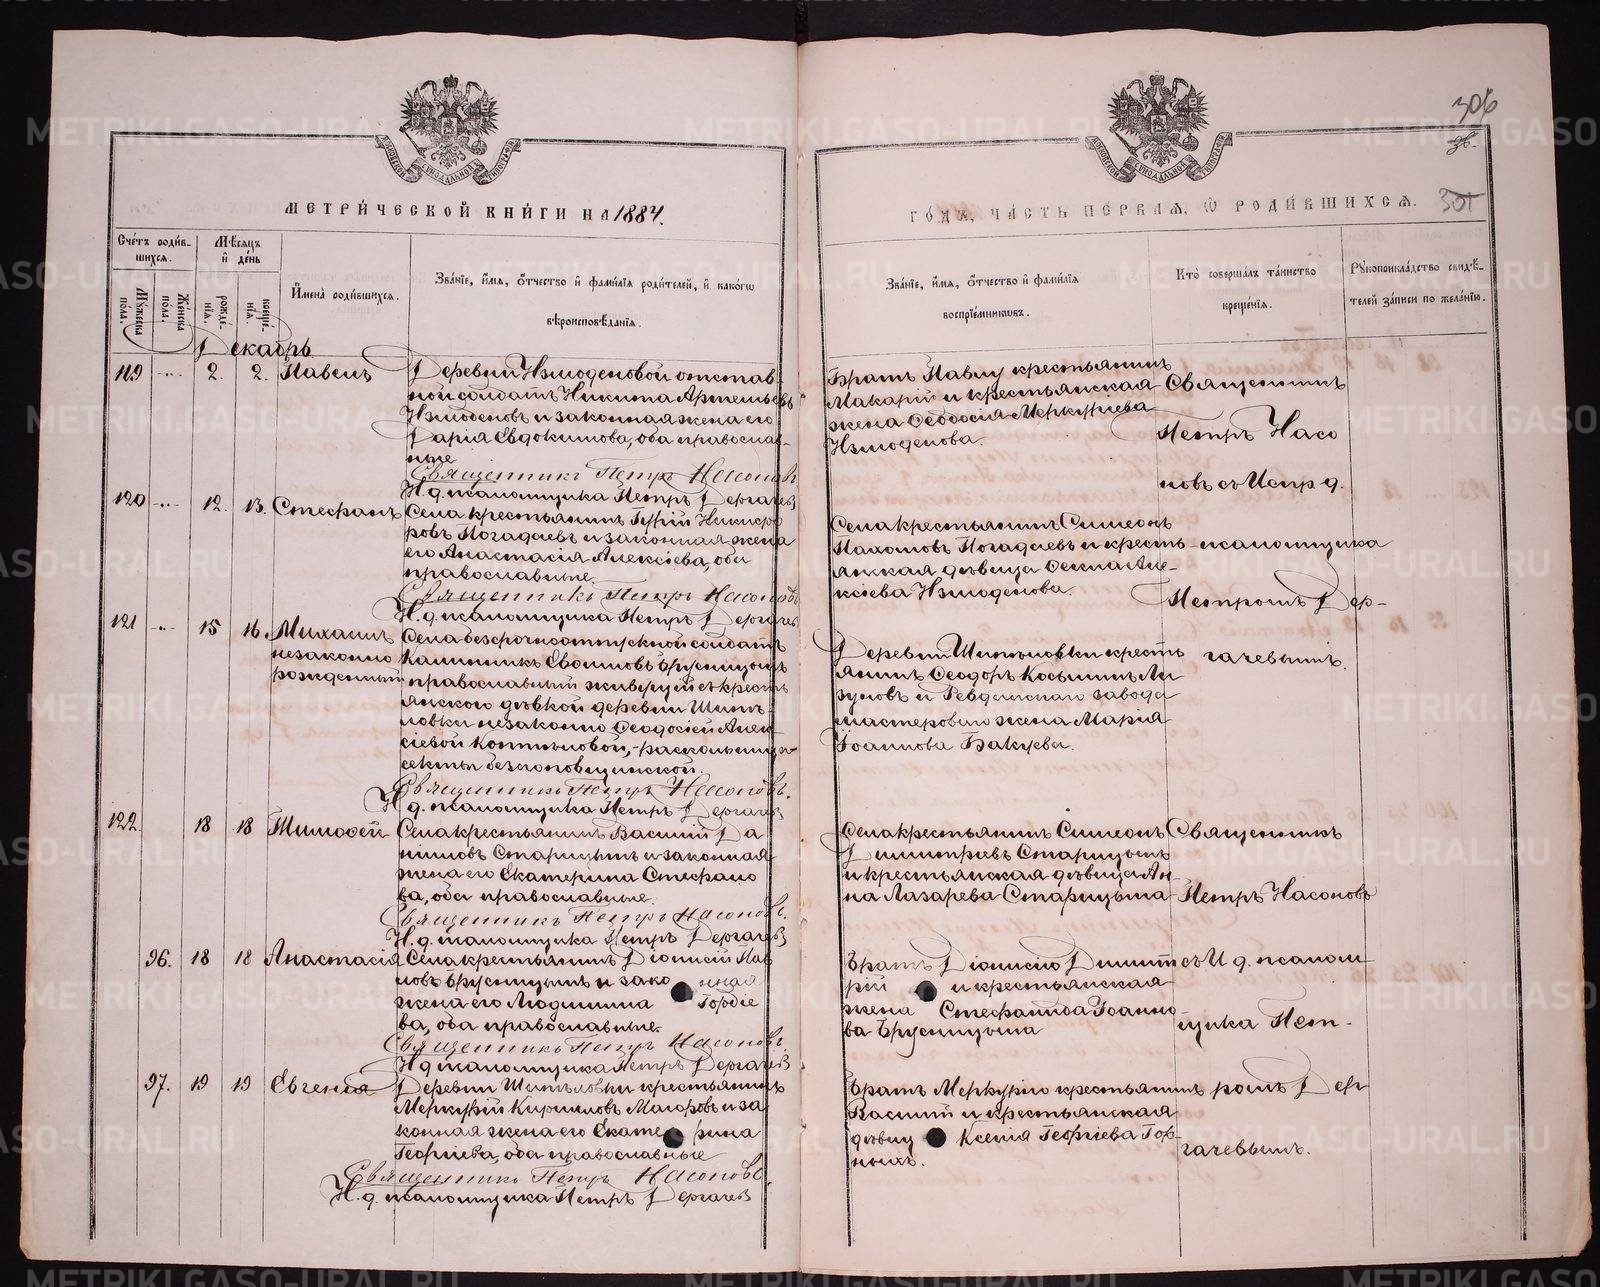 METRIKI.GASO-URAL.RU
306
зв.
МЕТРИ́ЧЕСКОЙ КНИ́ГИ НА 1884.
ГО́ДЪ, ЧА́СТЬ ПЕ́РВАЯ, Ѽ РОДИ́ВШИХСЯ.
Сче́тъ роди́в-
шихся.
Мꙋ́жеска
пола.
Же́нска
пола.
Мѣ́сяцъ
и де́нь
рожде́-
нїѧ.
креще́-
нїѧ.
И҆мена̀ роди́вшихся.
Зва́нїе, и҆́мя, ѻ҆́тчество и҆ фами́лїя роди́телей, и҆ како́гѡ
вѣроисповѣ́данїя.
Зва́нїе, и҆́мя, ѻ҆́тчество и҆ фами́лїя
воспрїе́мниковъ.
Кто̀ соверша́лъ та́инство
креще́нїя.
Рꙋкоприкла́дство свидѣ́-
телей за́писи по жела́нїю.
Декабрь
119 2. 2. Павелъ
Деревни Измоденовой отстав-
ной солдатъ Никита Артемьевъ
Измоденовъ и законная жена его
Дарія Евдокимова, оба православ-
ные
Священникъ Петръ Насоновъ
И. д. псаломщика Петръ Дергачевъ
Братъ Павлу крестьянинъ
Макарій и крестьянская
жена Ѳеодосія Меркуріева
Измоденова.
Священникъ
Петръ Насо
новъ съ Испр. д.
псаломщика
Петромъ Дер-
гачевымъ.
120 12. 13. Стефанъ
Села крестьянинъ Гурій Никифо
ровъ Погадаевъ и законная жена
его Анастасія Алексіева, оба
православные.
Священникъ Петръ Насоновъ
И. д. псаломщика Петръ Дергачевъ
Села крестьянинъ Симеонъ
Пахомовъ Погадаевъ и кресть-
янская дѣвица Ѳекла Але-
ксіева Измоденова.
121 15 16. Михаилъ
незаконно
рожденный
Села безсрочноотпускной солдатъ
Калинникъ Евоиловъ Брусницынъ
православный живущій съ кресть
янской дѣвкой деревни Шить-
ловки незаконно Ѳеодосіей Алек
сіевой Коптѣловой,- раскольницей
секты безпоповщинской.
Священникъ Петръ Насоновъ.
И. д. псаломщика Петръ Дергачевъ
Деревни Шипиловки крестъ
янинъ Ѳеодоръ Косьминъ Ли
зуновъ и Ревдинскаго завода
мастероваго жена Марія
Іоаннова Бакуева.
122. 18 18 Тимоѳей
Села крестьянинъ Василій Да
ніиловъ Старицынъ и законная
жена его Екатерина Стефано
ва, оба православные.
Священникъ Петръ Насоновъ.
И. д. псаломщика Петръ Дергачевъ
Села крестьянинъ Симеонъ
Димитріевъ Старицынъ
и крестьянская дѣвица Ан-
на Лазарева Старицына
Священникъ
Петръ Насоновъ
съ И д. псалом
щика Пет-
ромъ Дер
гачевымъ.
96. 18 18 Анастасія
Села крестьянинъ Діонисій Пав
ловъ Брусницынъ и законная
жена его Людмилла Гордіе
ва, оба православные.
Священникъ Петръ Насоновъ.
И д псаломщика Петръ Дергачевъ
Братъ Діонисію Димит
рій и крестьянская
жена Стефанида Іоанно
ва Брусницына
97. 19 19 Евгенія
Деревни Шипѣловки крестьянинъ
Меркурій Кирилловъ Магоровъ и за
конная жена его Екатерина
Георгіева, оба православные
Священникъ Петръ Насоновъ.
И. д. псаломщика Петръ Дергачевъ
Братъ Меркурію крестьянинъ
Василій и крестьянская
дѣвица Ксенія Георгіева Гор-
ныхъ.